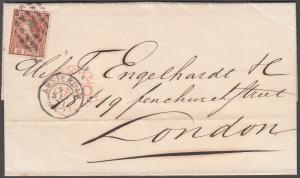 Mess. F. Engelhardt & C
18/19 fenchurch Street
London
AMSTERDAM